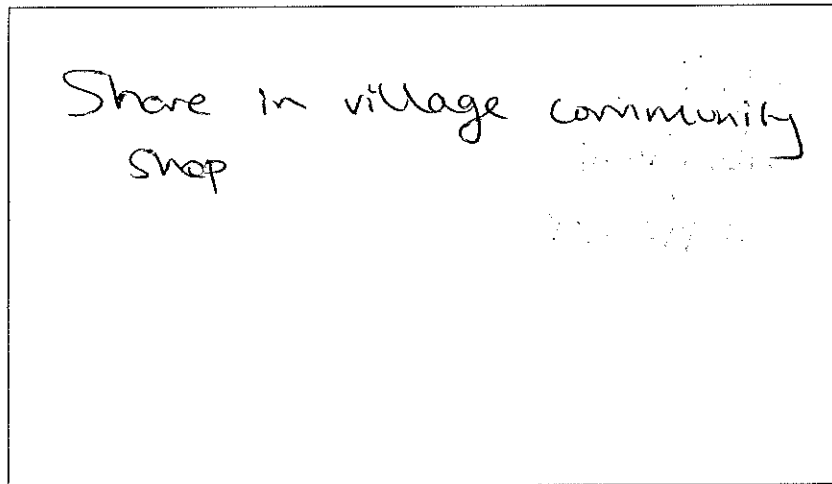 Share in village community
shop